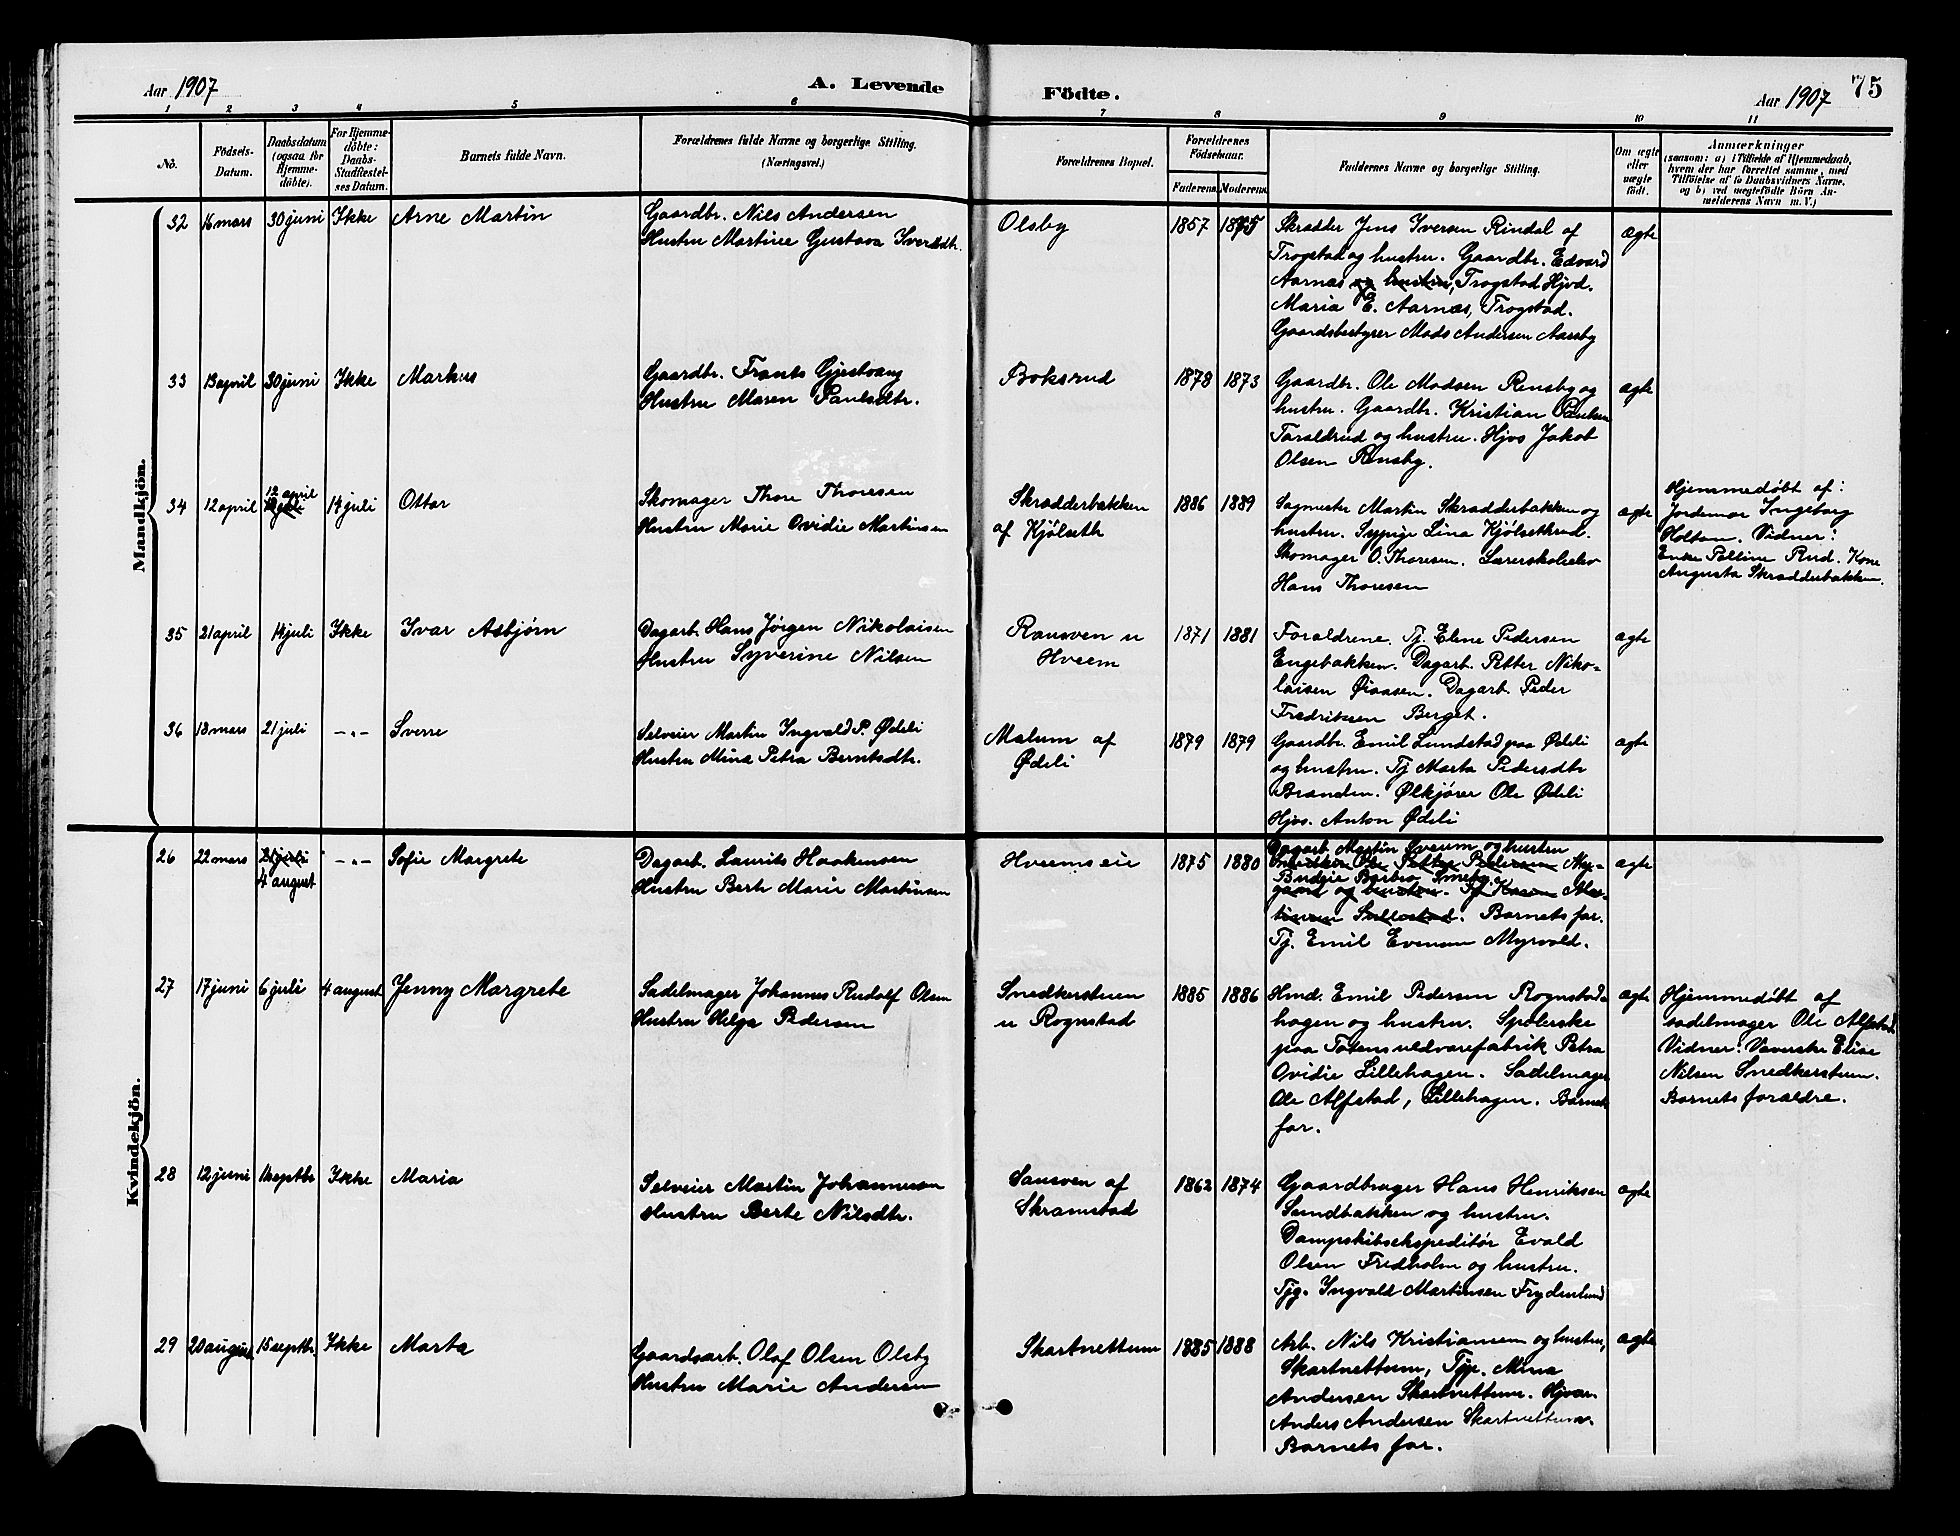 Aar 1907
A. Levende
Födte.
Aar 1907
75
1 2 3 4 5 6 7 8 9 10 11
No.
Födsels-
Datum.
Daabsdatum
(ogsaa for
Hjemme-
döbte).
For Hjemme-
döbte:
Daabs-
Stadfæstel-
ses Datum.
Barnets fulde Navn.
Forældrenes fulde Navne og borgerlige Stilling.
(Næringsvei.)
Forældrenes Bopæl.
Forældrenes
Födselsaar.
Faderens. Moderens.
Faddernes Navne og borgerlige Stilling.
Om ægte
eller
uægte
födt.
Anmærkninger
(saasom: a) i Tilfælde af Hjemmedaab,
hvem der har forrettet samme, med
Tilföielse af to Daabsvidners Navne,
og b) ved uægtefödte Börn An-
melderens Navn m. V.)
Mandkjön.
32 16 mars 30 juni Ikke Arne Martin
Gaardbr. Nils Andersen
Hustru Martine Gustava Iversdtr.
Olsby
1857 1875
Skrædder Jens Iversen Rindal af
Trogstad og hustru. Gaardbr. Edvard
Aarnæs og hustru, Trogstad Hjvd.
Maria E. Aarnæs, Trogstad.
Gaardsbestyrer Mads Andersen Aassby
ægte
33 13 april 30 juni Ikke Markus
Gaardbr. Frants Gjestvang
Hustru Maren Paulsdtr.
Boksrud
1878 1873
Gaardbr. Ole Madsen Rensby og
hustru. Gaardbr. Kristian Paulsen
Taraldrud og hustru. Hjvs Jakob
Olsen Rensby.
ægte
34 12 april 12 april 14 juli Ottar
Skomager Thore Thoresen
Hustru Marie Ovidie Martinsen
Skrædderbakken
af Kjölseth
1886 1889
Sagmester Martin Skrædderbakken og
hustru. Sypige Lina Kjölsethrud.
Skomager O. Thoresen. Lærerskoleelev
Hans Thoresen
ægte
Hjemmedöbt af:
Jordemor Ingeborg
Holton. Vidner:
Enke Pelline Rud. Kone
Augusta Skrædderbakken.
35 21 april 14 juli Ikke Ivar Asbjörn
Dagarb. Hans Jörgen Nikolaisen
Hustru Syverine Nilsen
Rausven u
Hveem
1871 1881
Forældrene. Tj. Eline Pedersen
Engebakken. Dagarb. Petter Niko-
laisen Øiaasen. Dagarb. Peder
Fredriksen Berget.
ægte
36 18 mars 21 juli -"- Sverre
Selveier Martin Ingvald P. Ødeli
Hustru Mina Petra Berntsdtr.
Malum af
Ødeli
1879 1879
Gaardbr. Emil Lundstad paa Ødeli
og hustru. Tj Marta Pedersdtr
Brænden. Ølkjører Ole Ødeli
Hjvs. Anton Ødeli
ægte
Kvindekjön.
26 22 mars 21 juli -"- Sofie Margrete
4 august
Dagarb. Laurits Haakensen
Hustru Berte Marie Martinsen
Hveemseie
1875 1880
Dagarb Martin Sveum og hustru
Snedker Ole Petter Pedersen Myr-
Budeie Barbro Smeby.
gaard og hustru. Tj Karen Mar-
tinsen Sillestad. Barnets far.
Tj. Emil Evensen Myrvold.
ægte
27 17 juni 6 juli 4 august Jenny Margrete
Sadelmager Johannes Rudolf Olsen
Hustru Helga Pedersen
Snedkerstuen
u Rognstad
1885 1886
Hmd. Emil Pedersen Rognstad-
hagen og hustru. Spolerske
paa Totens uldvarefabrik Petra
Ovidie Lillehagen. Sadelmager
Ole Alfstad, Lillehagen. Barnets
far.
ægte
Hjemmedöbt af
sadelmager Ole Alfstad
Vidner: Væverske Elise
Nilsen Snedkerstuen.
Barnets forældre.
28 12 juni 1 septbr Ikke Maria
Selveier Martin Johannesen
Hustru Berte Nilsdtr.
Sansven af
Skramstad
1862 1874
Gaardbruger Hans Henriksen
Sundbakken og hustru.
Dampskibsekspeditör Evald
Olsen Fredholm og hustru.
Tjg. Ingvald Martinsen Frydenlund
ægte
29 20 august 15 septbr. Ikke Marta
Gaardsarb. Olaf Olsen Olsby
Hustru Marie Andersen
Skartnettum
1885 1888
Arb. Nils Kristiansen og hustru,
Skartnettum, Tjp. Mina
Andersen Skartnettum. Hjvær.
Anders Andersen Skartnettum.
Barnets far.
ægte